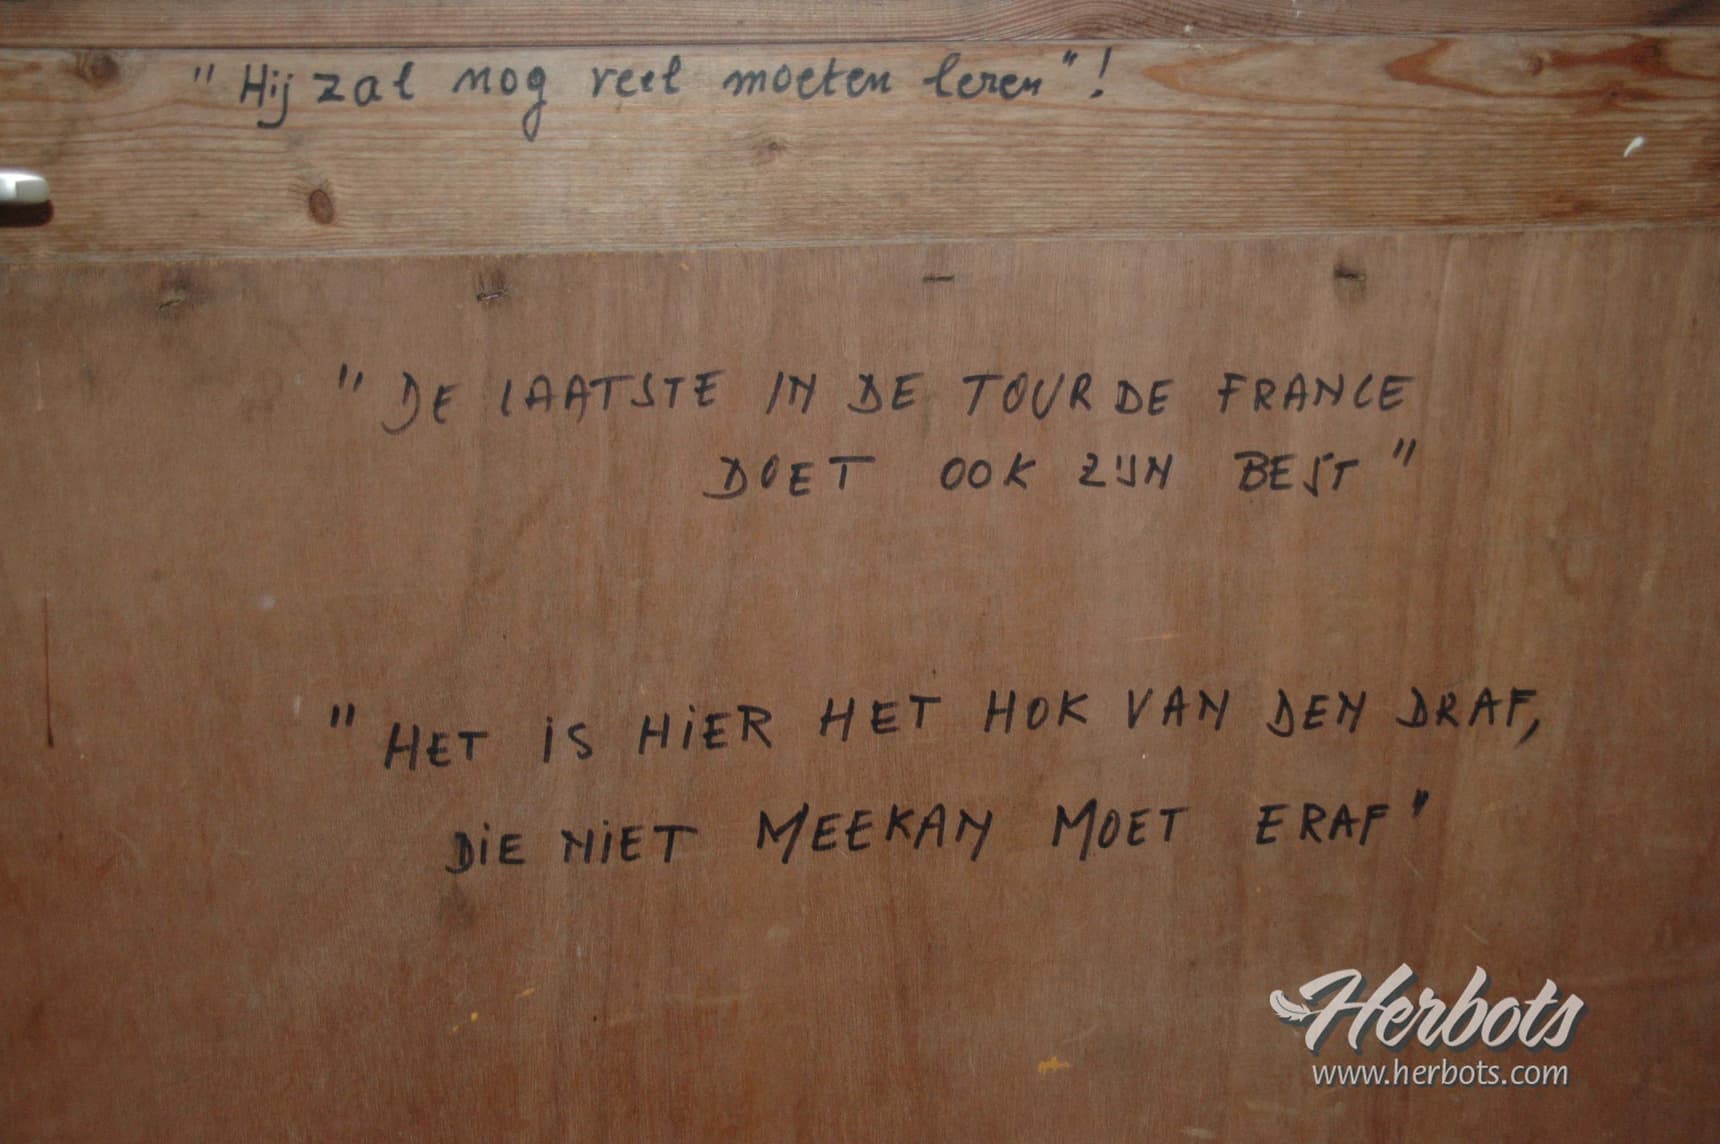 "Hij zal nog veel moeten leren"!
"DE LAATSTE IN DE TOUR DE FRANCE
DOET OOK ZIJN BEST"
"HET iS HiER HET HOK VAN DEN DRAF,
DiE NiET MEEKAN MOET ERAF"
Herbots
www.herbots.com